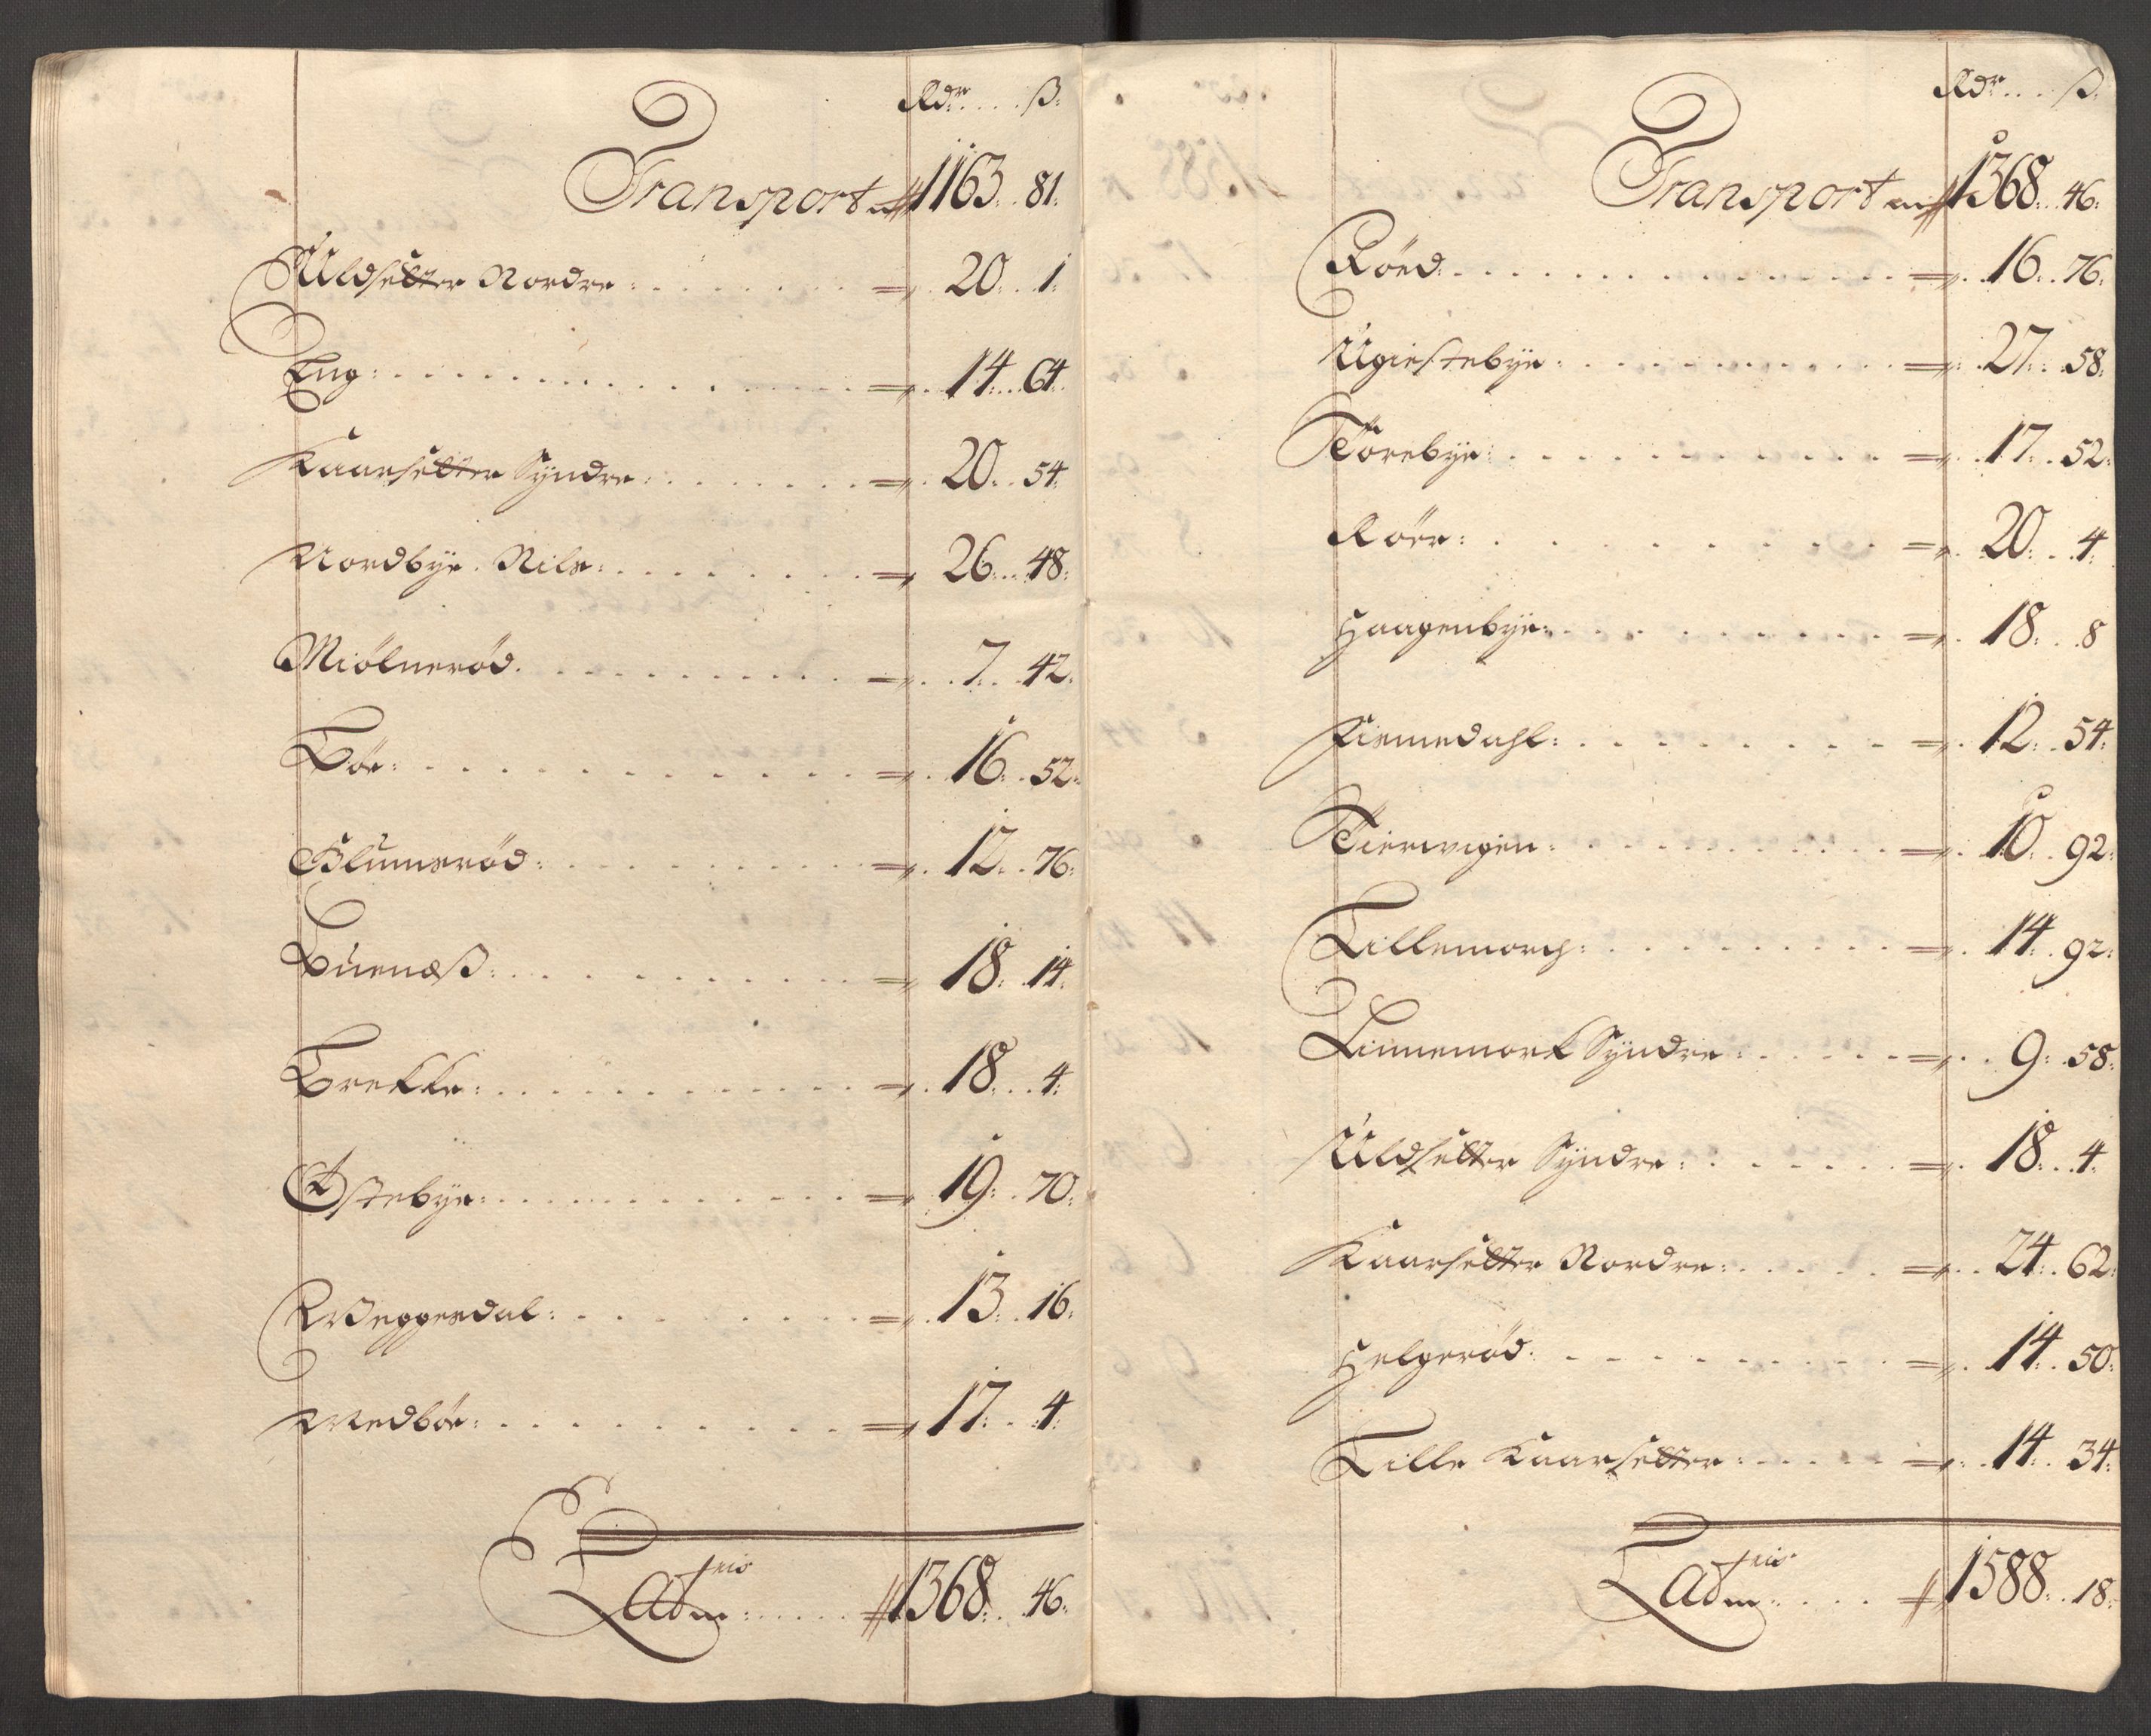 Rdr . . . ß:
Transport # 1163 . . 81:
Uldsetter Nordre : . . . 20 . . 1:
Eng : . . . 14 . . 64:
Kaarsetter Syndre : . . . 20 . . 54:
Nordbye Nils : . . . 26 . . 48:
Miölnerød . . . 7 . . 42:
Böe : . . . 16 . . 52:
Blumerød : . . . 12 . . 76:
Buenæß : . . . 18 . . 14:
Brekke : . . . 18 . . 4:
Østebye : . . . 19 . . 70:
Weggerdal : . . . 13 . . 16:
Wedböe : . . . 17 . . 4:
Latm # 1368 . . 46:
Rdr . . . ß:
Transport # 1368 . . 46:
Röed : . . . 16 . . 76:
Ugiestebye : . . . 27 . . 58:
Torebye : . . . 17 . . 52:
Röer : . . . 20 . . 4:
Haagenbye : . . . 18 . . 8
Fiemedahl : . . . 12 . . 54:
Tiervigen : . . . 10 . . 92:
Lillemorch : . . . 14 . . 92:
Linnemork Syndre : . . . 9 . . 58:
Uldsetter Syndre : . . . 18 . . 4:
Kaarsetter Nordre : . . . 24 . . 62:
Helgerød : . . . 14 . . 50:
Lille Kaarsetter : . . . 14 . . 34:
Latm # 1588 . . 18: